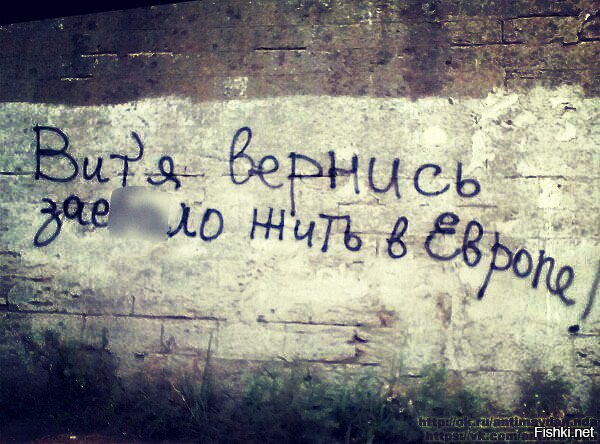 Витя вернись
зае ло жить в Европе!
http://ok.ru/antimaydan.nds
Fishki.net